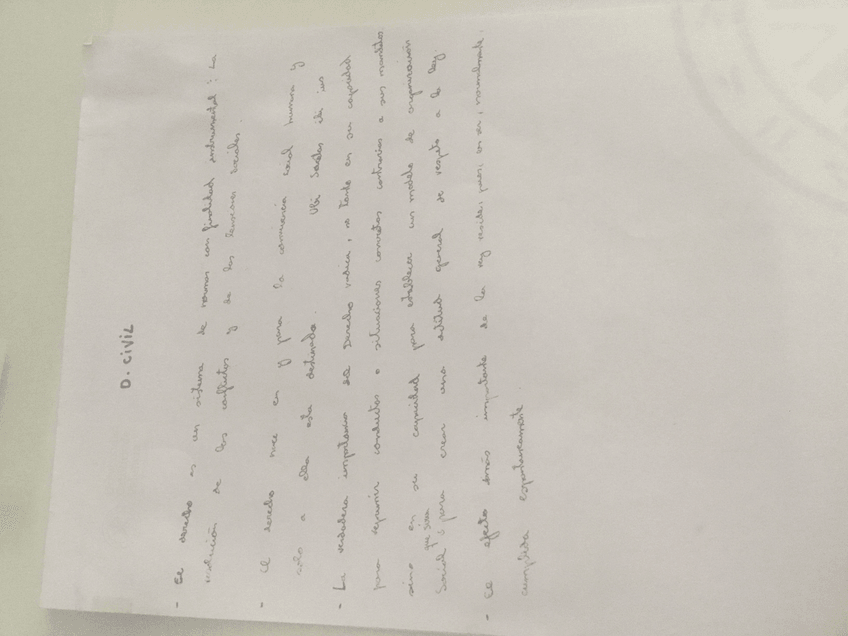 D. CIVIL
- El derecho es un sistema de normas con finalidad instrumental: La
solución de los conflictos y de las tensiones sociales.
- El derecho nace en y para la convivencia social humana y
solo a ella está destinado. Ubi Societas ibi ius
- La verdadera importancia del Derecho radica, no tanto en su capacidad
para reprimir conductas o situaciones concretas contrarias a sus mandatos
sino en su capacidad para establecer un modelo de organización
que sirva
Social y para crear una actitud general de respeto a la ley.
- El efecto más importante de la ley reside, pues, en ser, normalmente,
cumplida espontáneamente.